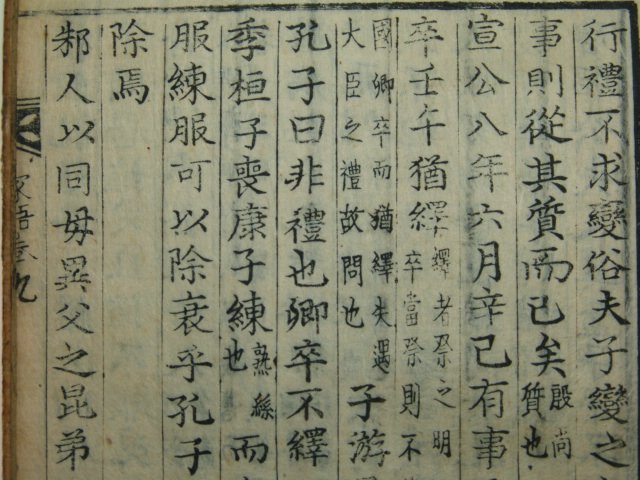 行禮不求變俗夫子變之
事則從其質而已矣殷尚質也
宣公八年六月辛已有事
卒壬午猶繹繹者祭之明卒當祭則不
國卿卒而猶繹失遇大臣之禮故問也子游
孔子曰非禮也卿卒不繹
季桓子喪康子練熟絲也而
服練服可以除衰乎孔子
除焉
邾人以同毋異父之昆弟
家語卷九